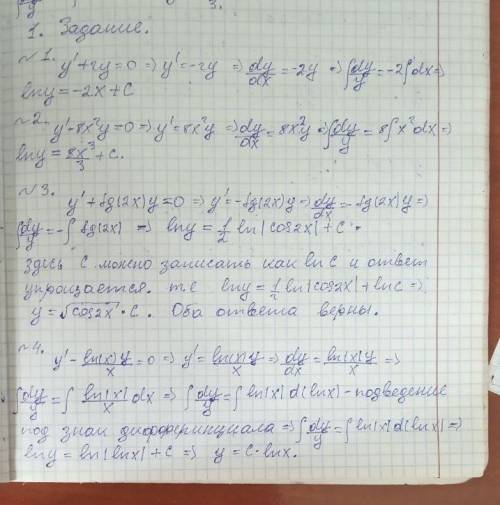 1. Задание.
~1. y'+2y=0 => y'=-2y => dy/dx=-2y => ∫dy/y=-2∫dx=>
lny=-2x+C
~2. y'-8x²y=0=>y'=8x²y=>dy/dx=8x²y=>∫dy/y=8∫x²dx=>
lny=8x³/3+C.
~3. y'+tg(2x)y=0=>y'=-tg(2x)y=>dy/dx=-tg(2x)y=>
∫dy/y=-∫tg(2x) => lny=1/2 ln|cos2x|+C.
Здесь С можно записать как lnC и ответ
упрощается. т.е lny=1/2 ln|cos2x|+lnC=>
y=√cos2x·C. Оба ответа верны.
~4. y'-ln(x)y/x=0=>y'=ln(x)y/x=>dy/dx=ln(x)y/x=>
∫dy/y=∫ln(x)/x dx=>∫dy/y=∫ln(x)d(lnx)-подведение
под знак дифференциала=>∫dy/y=∫ln(x)d(lnx)=>
lny=ln|lnx|+C=> y=C·lnx.